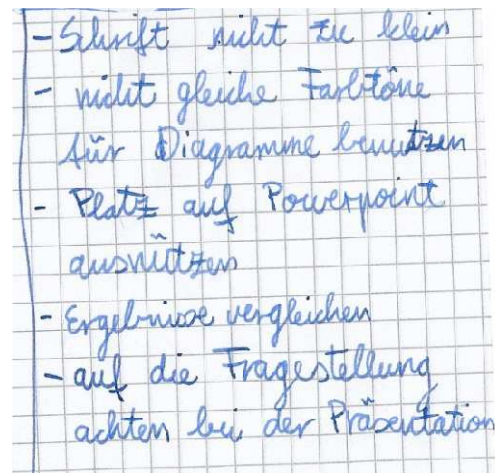 - Schrift nicht zu klein
- nicht gleiche Farbtöne
für Diagramme benutzen
- Platz auf Powerpoint
ausnützen
- Ergebnisse vergleichen
- auf die Fragestellung
achten bei der Präsentation